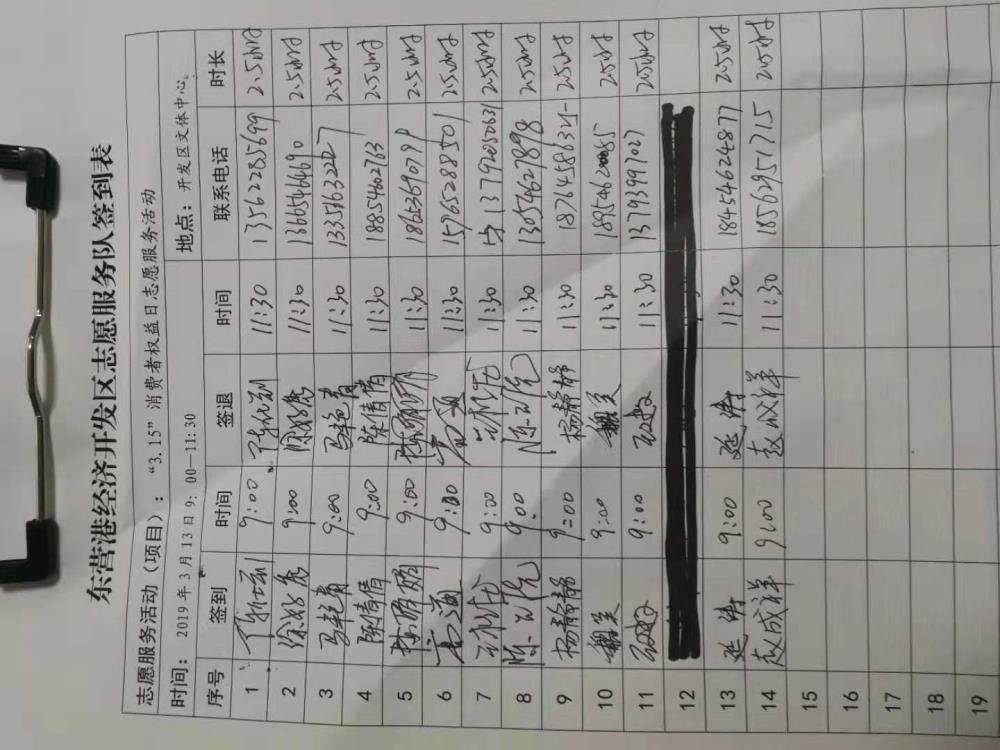 东营港经济开发区志愿服务队签到表
志愿服务活动（项目）：“3.15”消费者权益日志愿服务活动
时间：2019年3月13日9：00—11:30 地点：开发区文体中心。
序号 签到 时间 签退 时间 联系电话 时长
1 9:00 11:30 13562285699 2.5小时
2 9:00 11:30 13665466690 2.5小时
3 马艳青 9:00 马艳青 11:30 2.5小时
4 陈倩倩 9:00 陈倩倩 11:30 18854602763 2.5小时
5 9:00 11:30 2.5小时
6 9:00 11:30 15965288501 2.5小时
7 9:00 11:30 13792050631 2.5小时
8 9:00 11:30 13054629898 2.5小时
9 杨静静 9:00 杨静静 11:30 18714586325 2.5小时
10 9:00 11:30 2.5小时
11 9:00 11:30 13793991027 2.5小时
12
13 延涛 9:00 延涛 11:30 18454624877 2.5小时
14 赵成祥 9:00 赵成祥 11:30 18562951715 2.5小时
15
16
17
18
19